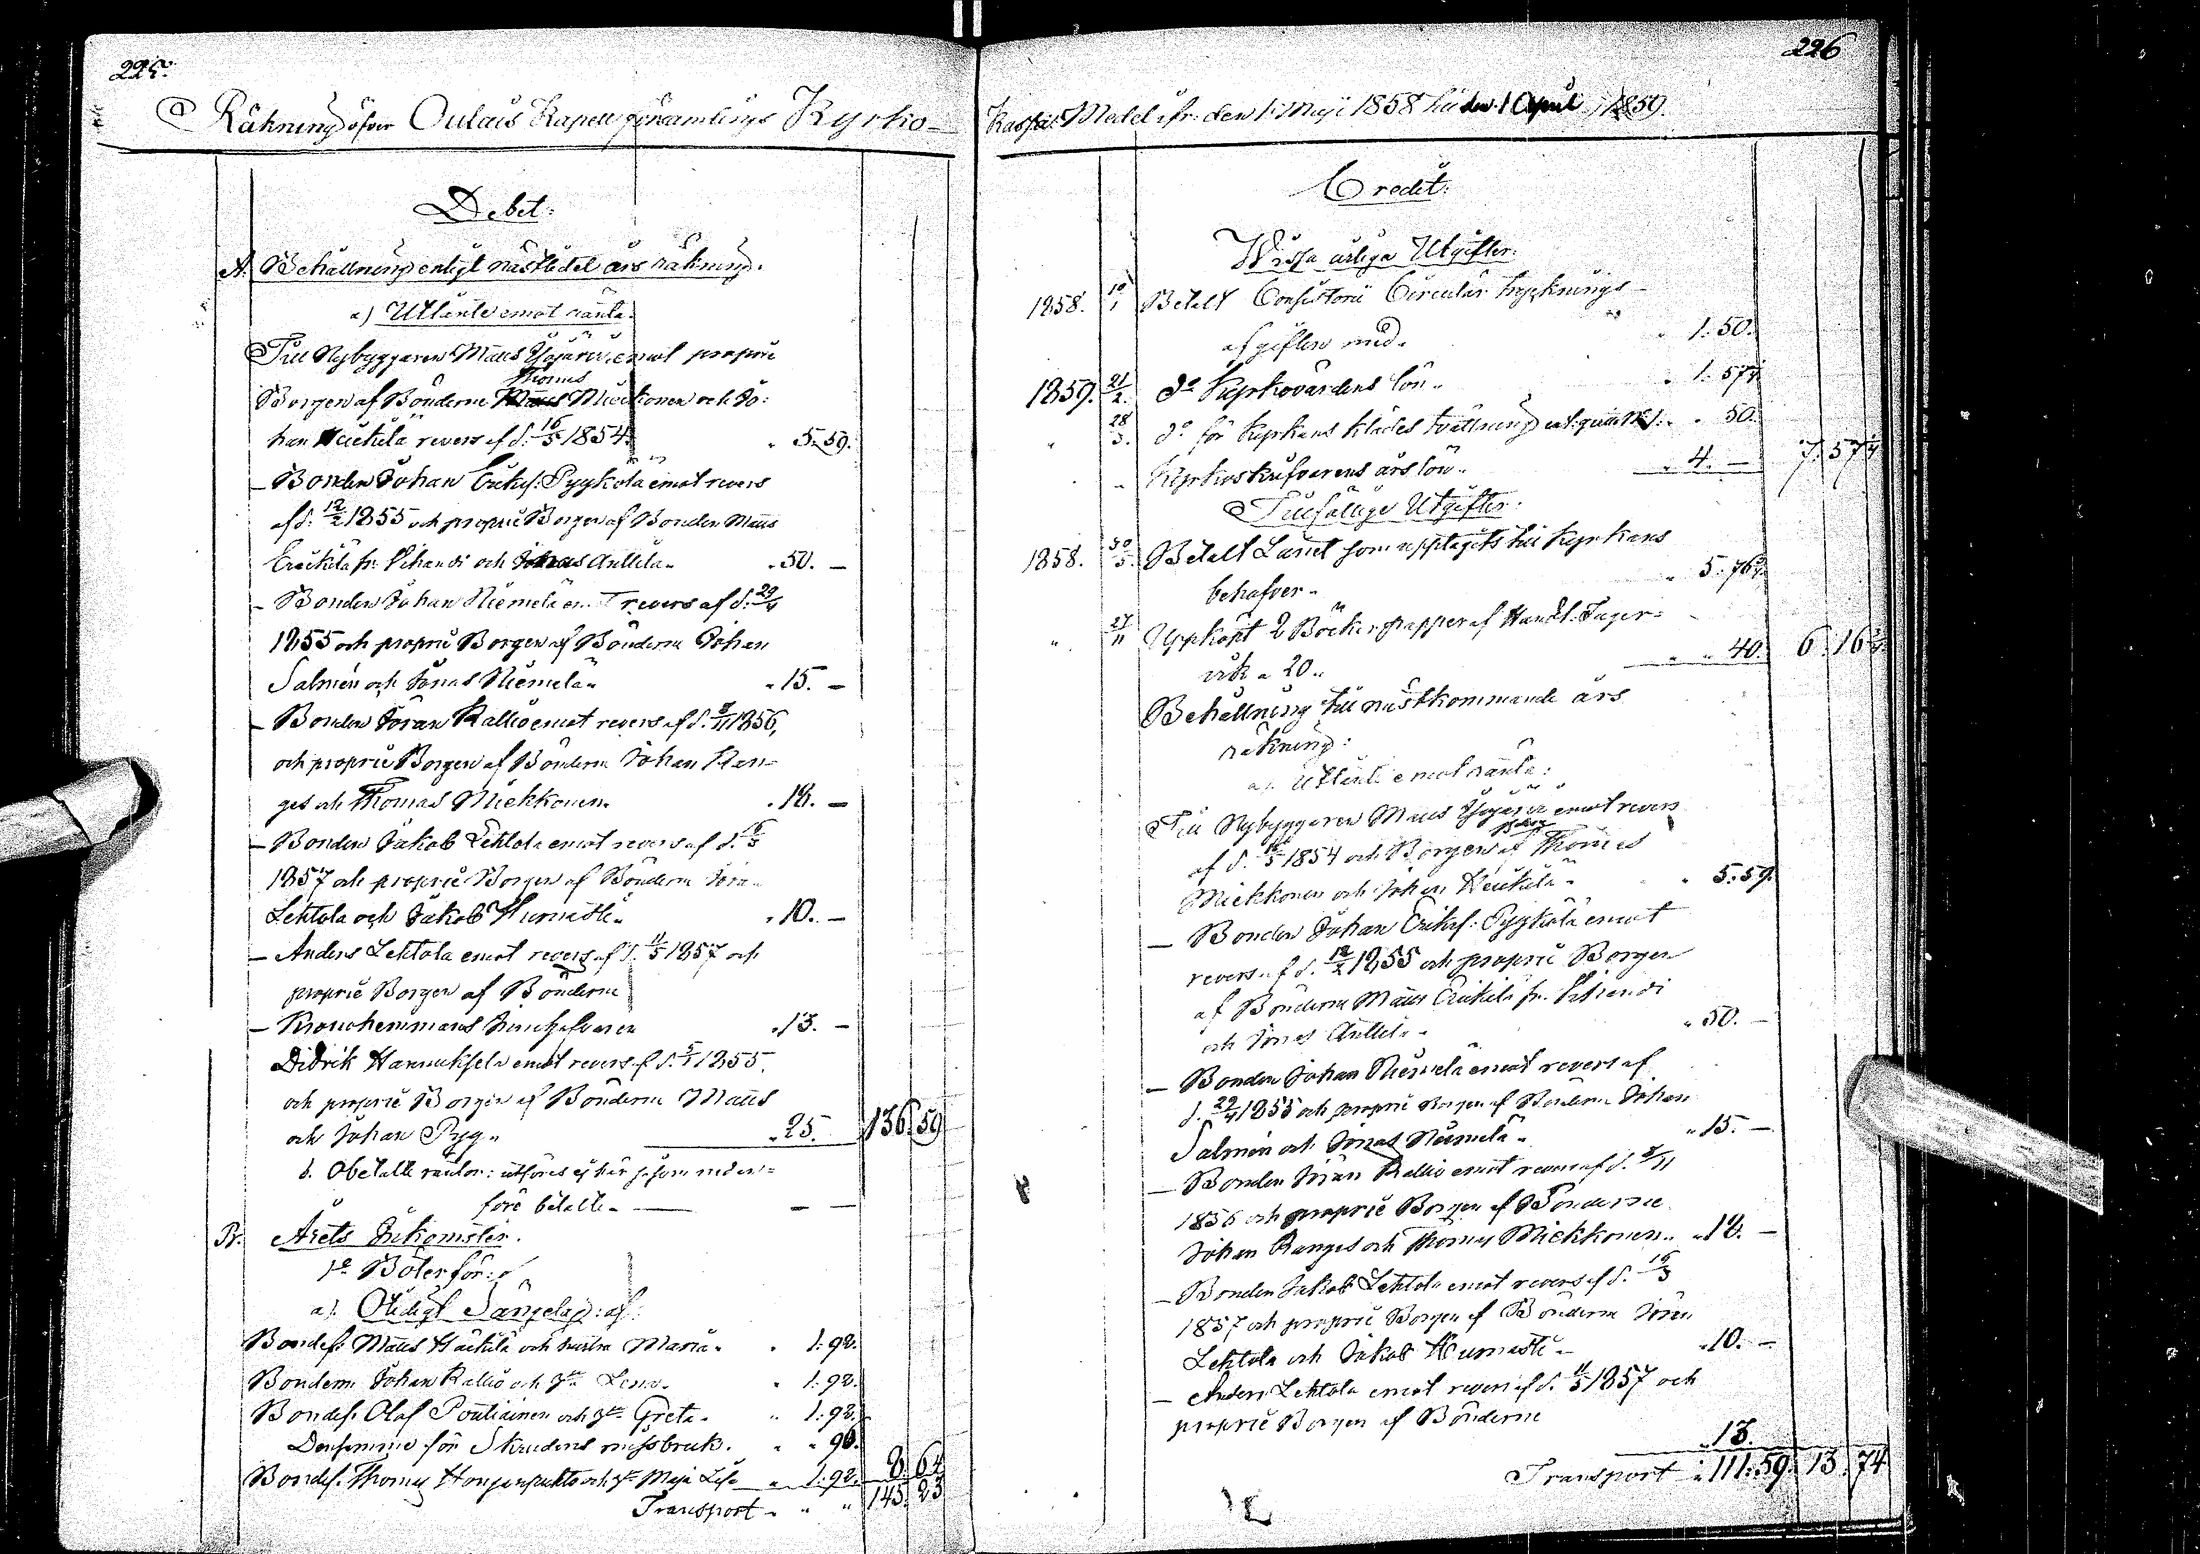 225.
Räkning öfver Oulais Kapell församlings Kyrko-
Debet:
A. Behållning enligt nästledet års räkning.
a) Utlånte emot ränta.
Till Nybyggaren Matts emot proprie
Thomas
Borgen af Bönderne Miekkonen och Jo-
han Heikilä revers af d. 16/5 1854. " 5. 59.
- Bonden Johan Eriks: Pyykölä emot revers
af d. 12/2 1855 och proprie Borgen af Bonden Matts
Erickilä fr. och Jonas Anttila " 50. -
- Bonden Johan Niemelä emot revers af d. 29/4
1855 och proprie Borgen af Bönderne Johan
Salmén och Jonas Niemelä " 15. -
- Bonden Jöran Kallio emot revers af d. 8/11 1856,
och proprie Borgen af Bönderne Johan Kan-
ges och Thomas Miekkonen. " 18. -
- Bonden Jakob Lehtola emot revers af d. 16/3
1857 och proprie Borgen af Bönderne Jöran
Lehtola och Jakob Hurnasti " 10. -
- Anders Lehtola emot revers af d. 11/5 1857 och
proprie Borgen af Bönderne
- Kronohemmans " 13. -
Didrik Hannuksela emot revers af d. 5/1 1855.
och proprie Borgen af Bönderne Matts
och Johan Pyy. " 25. 136. 59
b. Obetalte räntor: utföres ej här såsom neden-
före betalte. - -
Br. Årets Inkomster.
1o Böter för:
a). Otidigt Sängelag: af:
Bondes. Matts Häikilä och hustru Maria. " 1: 92.
Bondens Johan Kallio och Hu Lena. " 1: 92.
Bondes. Olof Pontiainen och Hu Greta. " 1: 92.
Densamme för Skrudens missbruk. " " 96.
Bondes. Thomas och Hu Maja Lisa " 1: 92. 8 64
Transport " " 145. 23
226
Kassas Medel ifr. den 1 Maji 1858 till den 1 April 1859.
Credit:
Wissa årliga Utgifter:
1858. 10/1 Betalt Consistorii Circulär trycknings-
afgiften med. " 1. 50.
1859. 21/2. do Kyrkovärdens lön. " 1. 57 1/4
" 28/3. do för Kyrkans kläders tvättning enl. qvitt. No 1. " 50.
" " Kyrkoskrifvarens års lön. " 4. - 7. 57 1/4
Tillfällige Utgifter.
1858. 30/5. Betalt Lånet som upptagits till Kyrkans
behofver. " 5. 76 3/4
" 27/11 Uppköpt 2 Böcker papper af Handl. Lager-
vik a 20.. " " 40. 6. 16 3/4
Behållning till nästkommande års
räkning:
a). Utlånte emot ränta:
Till Nybyggaren Matts emot revers
af d. 16/5 1854 och Borgen af Thomas
Miekkonen och Johan Heikilä " 5: 59.
- Bonden Johan Eriks: Pyykölä emot
revers af d. 12/2 1855 och proprie Borgen
af Bönderne Matts Erickilä fr.
och Jonas Anttila " 50. -
- Bonden Johan Niemelä emot revers af
d. 29/4 1855 och proprie Borgen af Bönderne Johan
Salmén och Jonas Niemelä " 15. -
- Bonden Jöran Kallio emot revers af d. 8/11
1856 och proprie Borgen af Bönderne
Johan Kanges och Thomas Miekkonen. " 18. -
- Bonden Jakob Lehtola emot revers af d. 16/3
1857 och proprie Borgen af Bönderne Jöran
Lehtola och Jakob Hurnasti " 10. -
- Anders Lehtola emot revers af d. 11/5 1857 och
proprie Borgen af Bönderne
" 13.
Transport " 111. 59. 13. 74